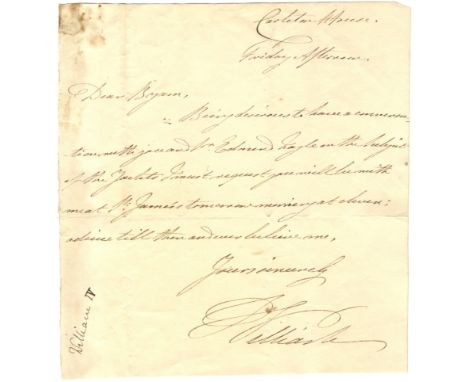 Carleton House.
Friday Afternoon.
Dear Bryam,
Being desirous to have a conversa-
tion with you and Sr. Edmund Nagle on the subject
of the Yachts I must request you will be with
me at St. James's tomorrow morning at eleven.
adieu till then and ever believe me,
Yours sincerely
William
William IV